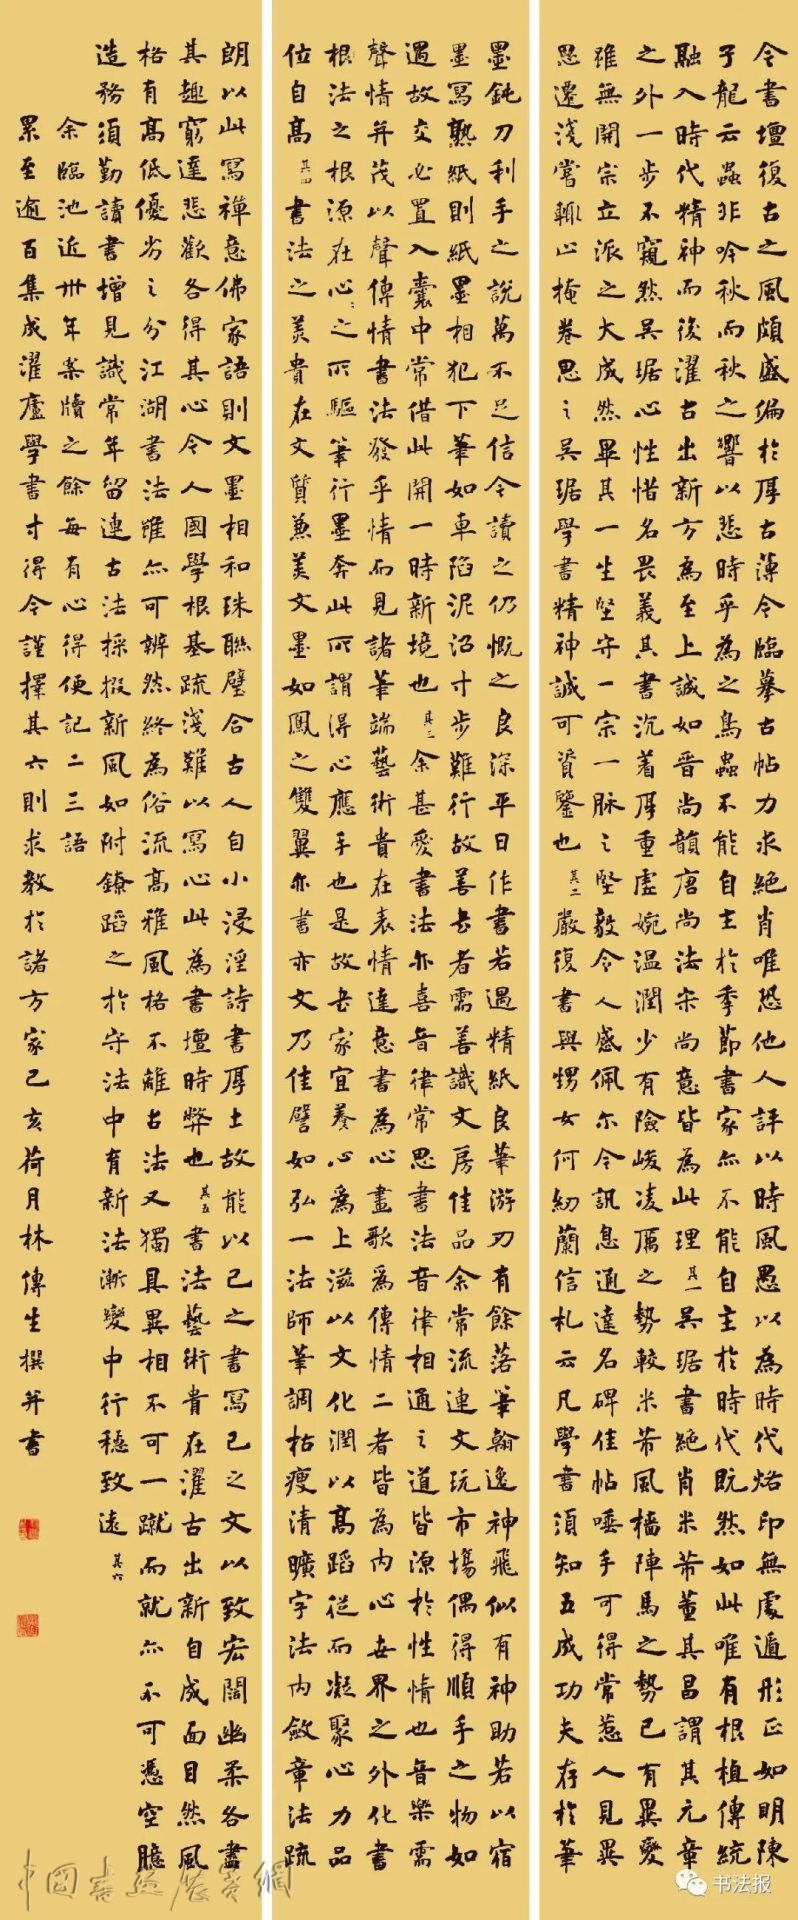 今書壇復古之風頗盛偏於厚古薄今臨摹古帖力求絕肖唯恐他人評以時風愚以為時代烙印無處遁形正如明陳
子龍云蟲非吟秋而秋之響以悲時乎為之鳥蟲不能自主於季節書家亦不能自主於時代既然如此唯有根植傳統
融入時代精神而後濯古出新方為至上誠如晋尚韻唐尚法宋尚意皆為此理其一吳琚書絕肖米芾董其昌謂其元章
之外一步不窺然吳琚心性惜名畏義其書沉着厚重虛婉温潤少有險峻凌厲之勢較米芾風檣陣馬之勢已有異變
雖無開宗立派之大成然畢其一生堅守一宗一脉之堅毅令人感佩尔今訊息通達名碑佳帖唾手可得常惹人見異
思遷淺嘗輒止掩卷思之吳琚學書精神誠可資鑒也其二嚴復書與甥女何紉蘭信札云凡學書須知五成功夫存於筆
墨鈍刀利手之說萬不足信今讀之仍慨之良深平日作書若遇精紙良筆游刃有餘落筆翰逸神飛似有神助若以宿
墨寫熟紙則紙墨相犯下筆如車陷泥沼寸步難行故善書者需善識文房佳品余常流連文玩市場偶得順手之物如
遇故交必置入囊中常借此開一時新境也其三余甚愛書法亦喜音律常思書法音律相通之道皆源於性情也音樂需
聲情并茂以聲傳情書法發乎情而見諸筆端藝術貴在表情達意書為心畫歌為傳情二者皆為内心世界之外化書
根法之根源在心心之所驅筆行墨奔此所謂得心應手也是故書家宜養心為上滋以文化潤以高蹈從而凝聚心力品
位自高其四書法之美貴在文質兼美文墨如鳳之雙翼亦書亦文乃佳譬如弘一法師筆調枯瘦清曠字法内斂章法疏
朗以此寫禅意佛家語則文墨相和珠聯璧合古人自小浸淫詩書厚土故能以己之書寫己之文以致宏闊幽柔各盡
其趣窮達悲歡各得其心今人國學根基疏淺難以寫心此為書壇時弊也其五書法藝術貴在濯古出新自成面目然風
格有高低優劣之分江湖書法雖亦可辨然終為俗流高雅風格不離古法又獨具異相不可一蹴而就亦不可憑空臆
造務須勤讀書增見識常年留連古法採撷新風如附鐐蹈之於守法中育新法漸變中行穩致遠其六
余臨池近卅年案牘之餘每有心得便記二三語
累至逾百集成濯廬學書寸得今謹擇其六則求教於諸方家己亥荷月林傳生撰并書
中國書法展賽網
书法报